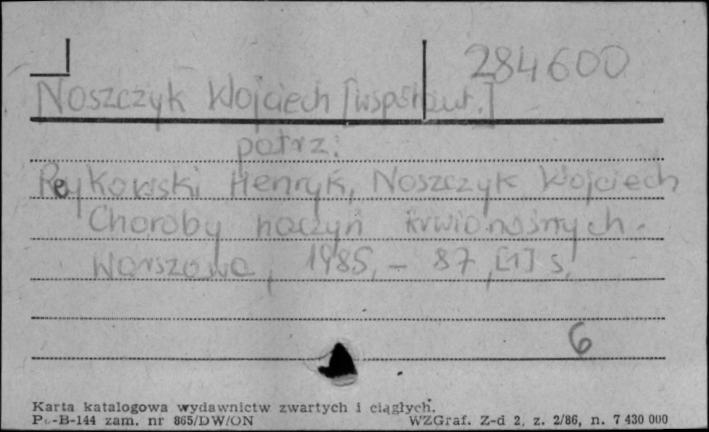 284600
Noszczyk Wojciech [współaut.]
patrz:
Reykowski Henryk, Noszczyk Wojciech
Choroby naczyń krwionośnych.
Warszawa, 1985, - 87, [1] s.
6
Karta katalogowa wydawnictw zwartych i ciągłych.
Pu-B-144 zam. nr 865/DW/ON WZGraf. Z-d 2, z. 2/86, n. 7 430 000